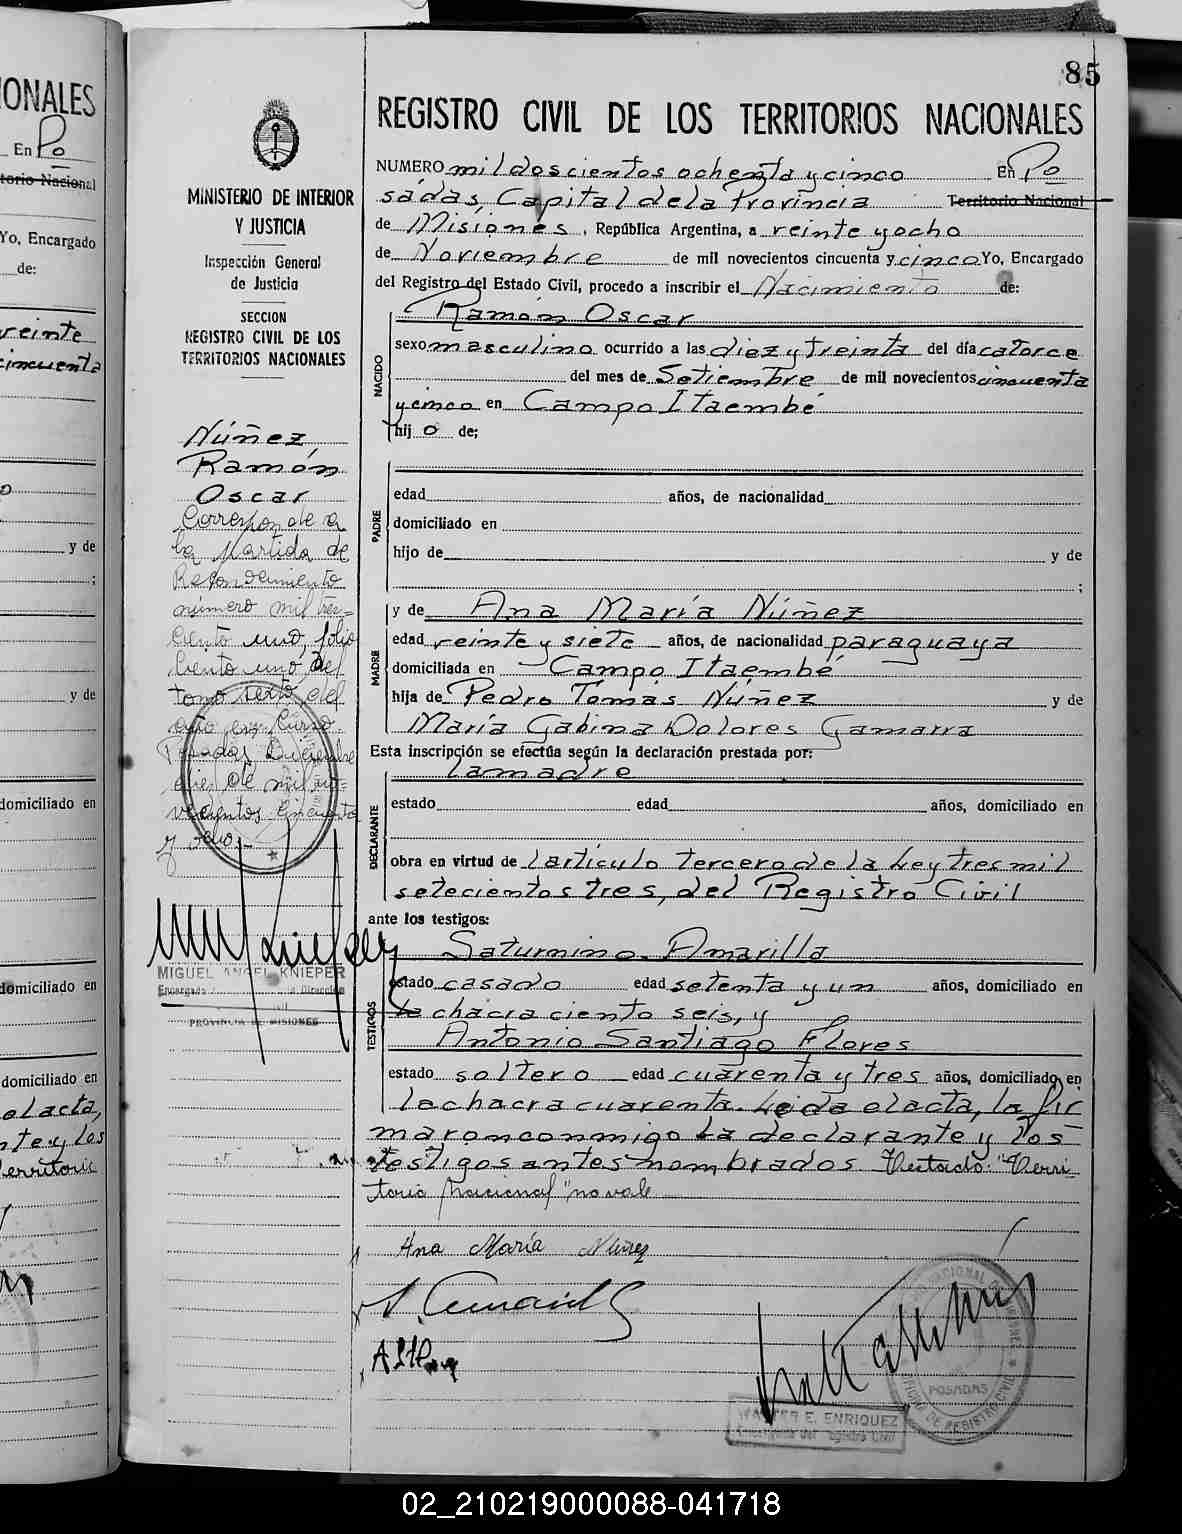 IONALES
En Po
torio Nacional
Yo, Encargado
de:
veinte
cincuenta
y de
;
y de
domiciliado en
domiciliado en
domiciliado en
el acta,
nte y los
Territorio
85
MINISTERIO DE INTERIOR
Y JUSTICIA
Inspección General
de Justicia
SECCION
REGISTRO CIVIL DE LOS
TERRITORIOS NACIONALES
Núñez,
Ramón
Oscar
Corresponde a
la Partida de
Reconocimiento
número mil tres=
ciento uno, folio
ciento uno del
tomo sexto del
año en curso.
Posadas, Diciembre
de mil no=
vecientos cincuenta
y ocho.-
MIGUEL ANGEL KNIEPER
PROVINCIA DE MISIONES
REGISTRO CIVIL DE LOS TERRITORIOS NACIONALES
NUMERO mil doscientos ochenta y cinco En Po
sádas, Capital de la Provincia Territorio Nacional
de Misiones, República Argentina, a veinte y ocho
de Noviembre de mil novecientos cincuenta y cinco Yo, Encargado
del Registro del Estado Civil, procedo a inscribir el Nacimiento de:
Ramón Oscar
NACIDO
sexo masculino ocurrido a las diez y treinta del día catorce
del mes de Setiembre de mil novecientos cincuenta
y cinco en Campo Itaembé
hij o de;
PADRE
edad años, de nacionalidad
domiciliado en
hijo de y de
;
MADRE
y de Ana María Núñez
edad veinte y siete años, de nacionalidad paraguaya
domiciliada en Campo Itaembé
hija de Pedro Tomas Núñez y de
María Gabina Dolores Gamarra
Esta inscripción se efectúa según la declaración prestada por:
la madre
DECLARANTE
estado edad años, domiciliado en
obra en virtud de l artículo tercero de la Ley tres mil
setecientos tres, del Registro Civil
ante los testigos:
Saturnino Amarilla
TESTIGOS
estado casado edad setenta y un años, domiciliado en
la chacra ciento seis, y
Antonio Santiago Flores
estado soltero edad cuarenta y tres años, domiciliado en
la chacra cuarenta. Leída el acta, la fir
maron conmigo la declarante y los
testigos antes nombrados. Testado: "Terri-
torio Nacional" no vale
Ana María Núñez
POSADAS
OFICINA DE REGISTRO CIVIL
WALTER E. ENRIQUEZ
Encargado del Registro Civil
02_210219000088-041718